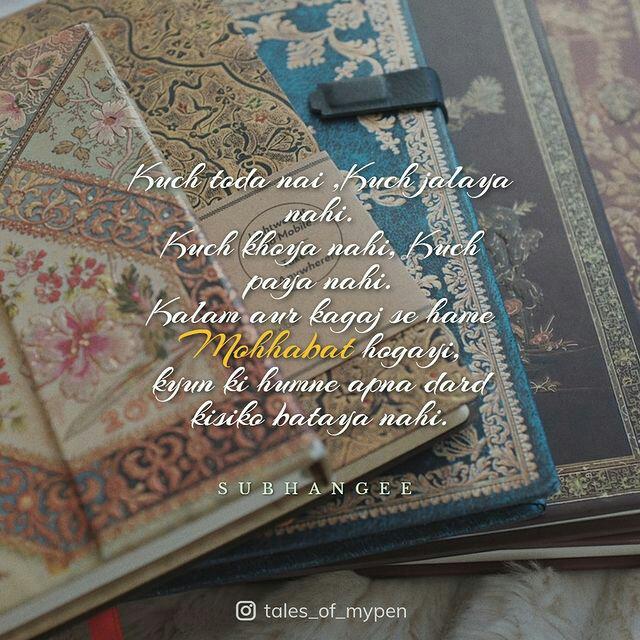 Kuch toda nai ,Kuch jalaya
nahi.
Kuch khoya nahi, Kuch
paya nahi.
Kalam aur kagaj se hame
Mohhabat hogayi,
kyun ki humne apna dard
kisiko bataya nahi.
SUBHANGEE
tales_of_mypen